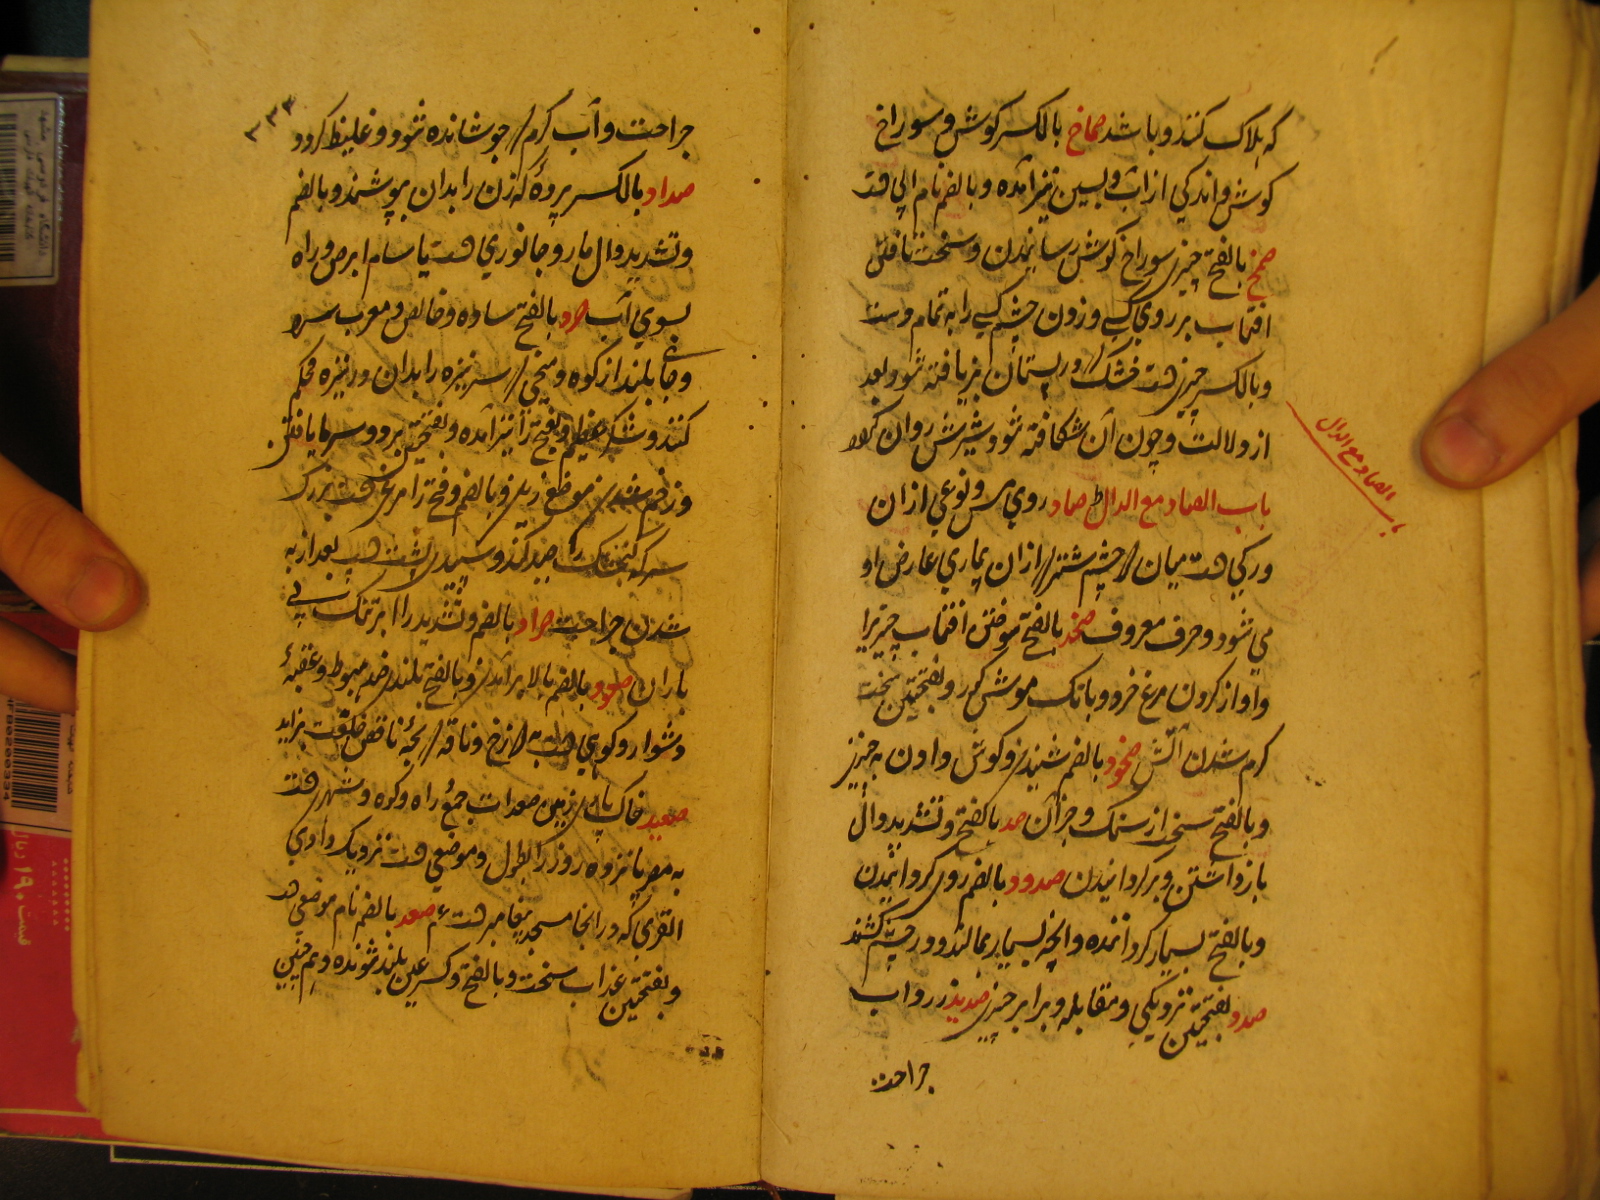 که هلاک کنند و باشد صماخ بالکسر کوش و سوراخ
کوش و اندکی از آب و پسین نیز آمده و بالضم نام الی هست
صمخ بالفتح چیزی سوراخ کوش رسانیدن و سخت تافتن
افتاب بر روی کسی و زدن چشم کسی را به تمام دست
و بالکسر چیزی هست خشک در پستان نیز یافته شود بعد
از ولادت و چون آن شکافته شود شیرش روان کردد
باب الصاد مع الدال صاد روی مس و نوعی از ان
و رکی هست میان چشم شتر از ان بیماری عارض او
می شود و حرف معروف صخد بالفتح سوختن افتاب چیزیرا
و اواز کردن مرغ خرد و بانک موش کور و بفتحتین سخت
کرم شدن آتش صخود بالضم شنیدن و کوش دادن به چیزی
و بالفتح سخت از سنک و جز آن صد بالفتح و تشدید دال
باز داشتن و بر کردانیدن صدود بالضم روی کردانیدن
و بالفتح بسیار کرداننده و انچه بسیار بمالند و در چشم کشند
صدد بفتحتین نزدیکی و مقابله و برابر چیزی صدید زرد اب
جراحت
باب الصاد مع الدال
۳۳۳
جراحت و آب کرم جوشانده شود و غلیظ کردد
صداد بالکسر پرده که زن را بدان بپوشند و بالضم
و تشدید دال مار و جانوری هست یا سام ابرص و راه
بسوی آب صرد بالفتح ساده و خالص و معرب سرد
و جای بلند از کوه و میخی سر نیزه را بدان در نیزه محکم
کنند و لشکر عظیم و بفتح را نیز آمده و بفتحتین برد و سرما یافتن
و زخم شدن موضع زین و بالضم و فتح را مرغی هست بزرک
سر که کنجشک را صید کند و سپیدی پشت اسب بعد از به
شدن جراحت صراد بالضم و تشدید را ابر تنک بی
باران صعود بالضم بالا بر آمدن و بالفتح بلند ضد هبوط و عقبهٔ
دشوار و کوهی هست به دوزخ و ناقه بچهٔ ناقص خلقت بزاید
صعید خاک یا روی زمین صعدات جمع راه و کوه و شهری هست
به مصر پانزده روز راه طول و موضعی هست نزدیک وادی
القری که در انجا مسجد پیغامبر هست ع م صعد بالضم نام موضعی هست
و بفتحتین عذاب سخت و بالفتح و کسر عین بلند شونده و هم چنین
قیمت ۱۹۰ ریال